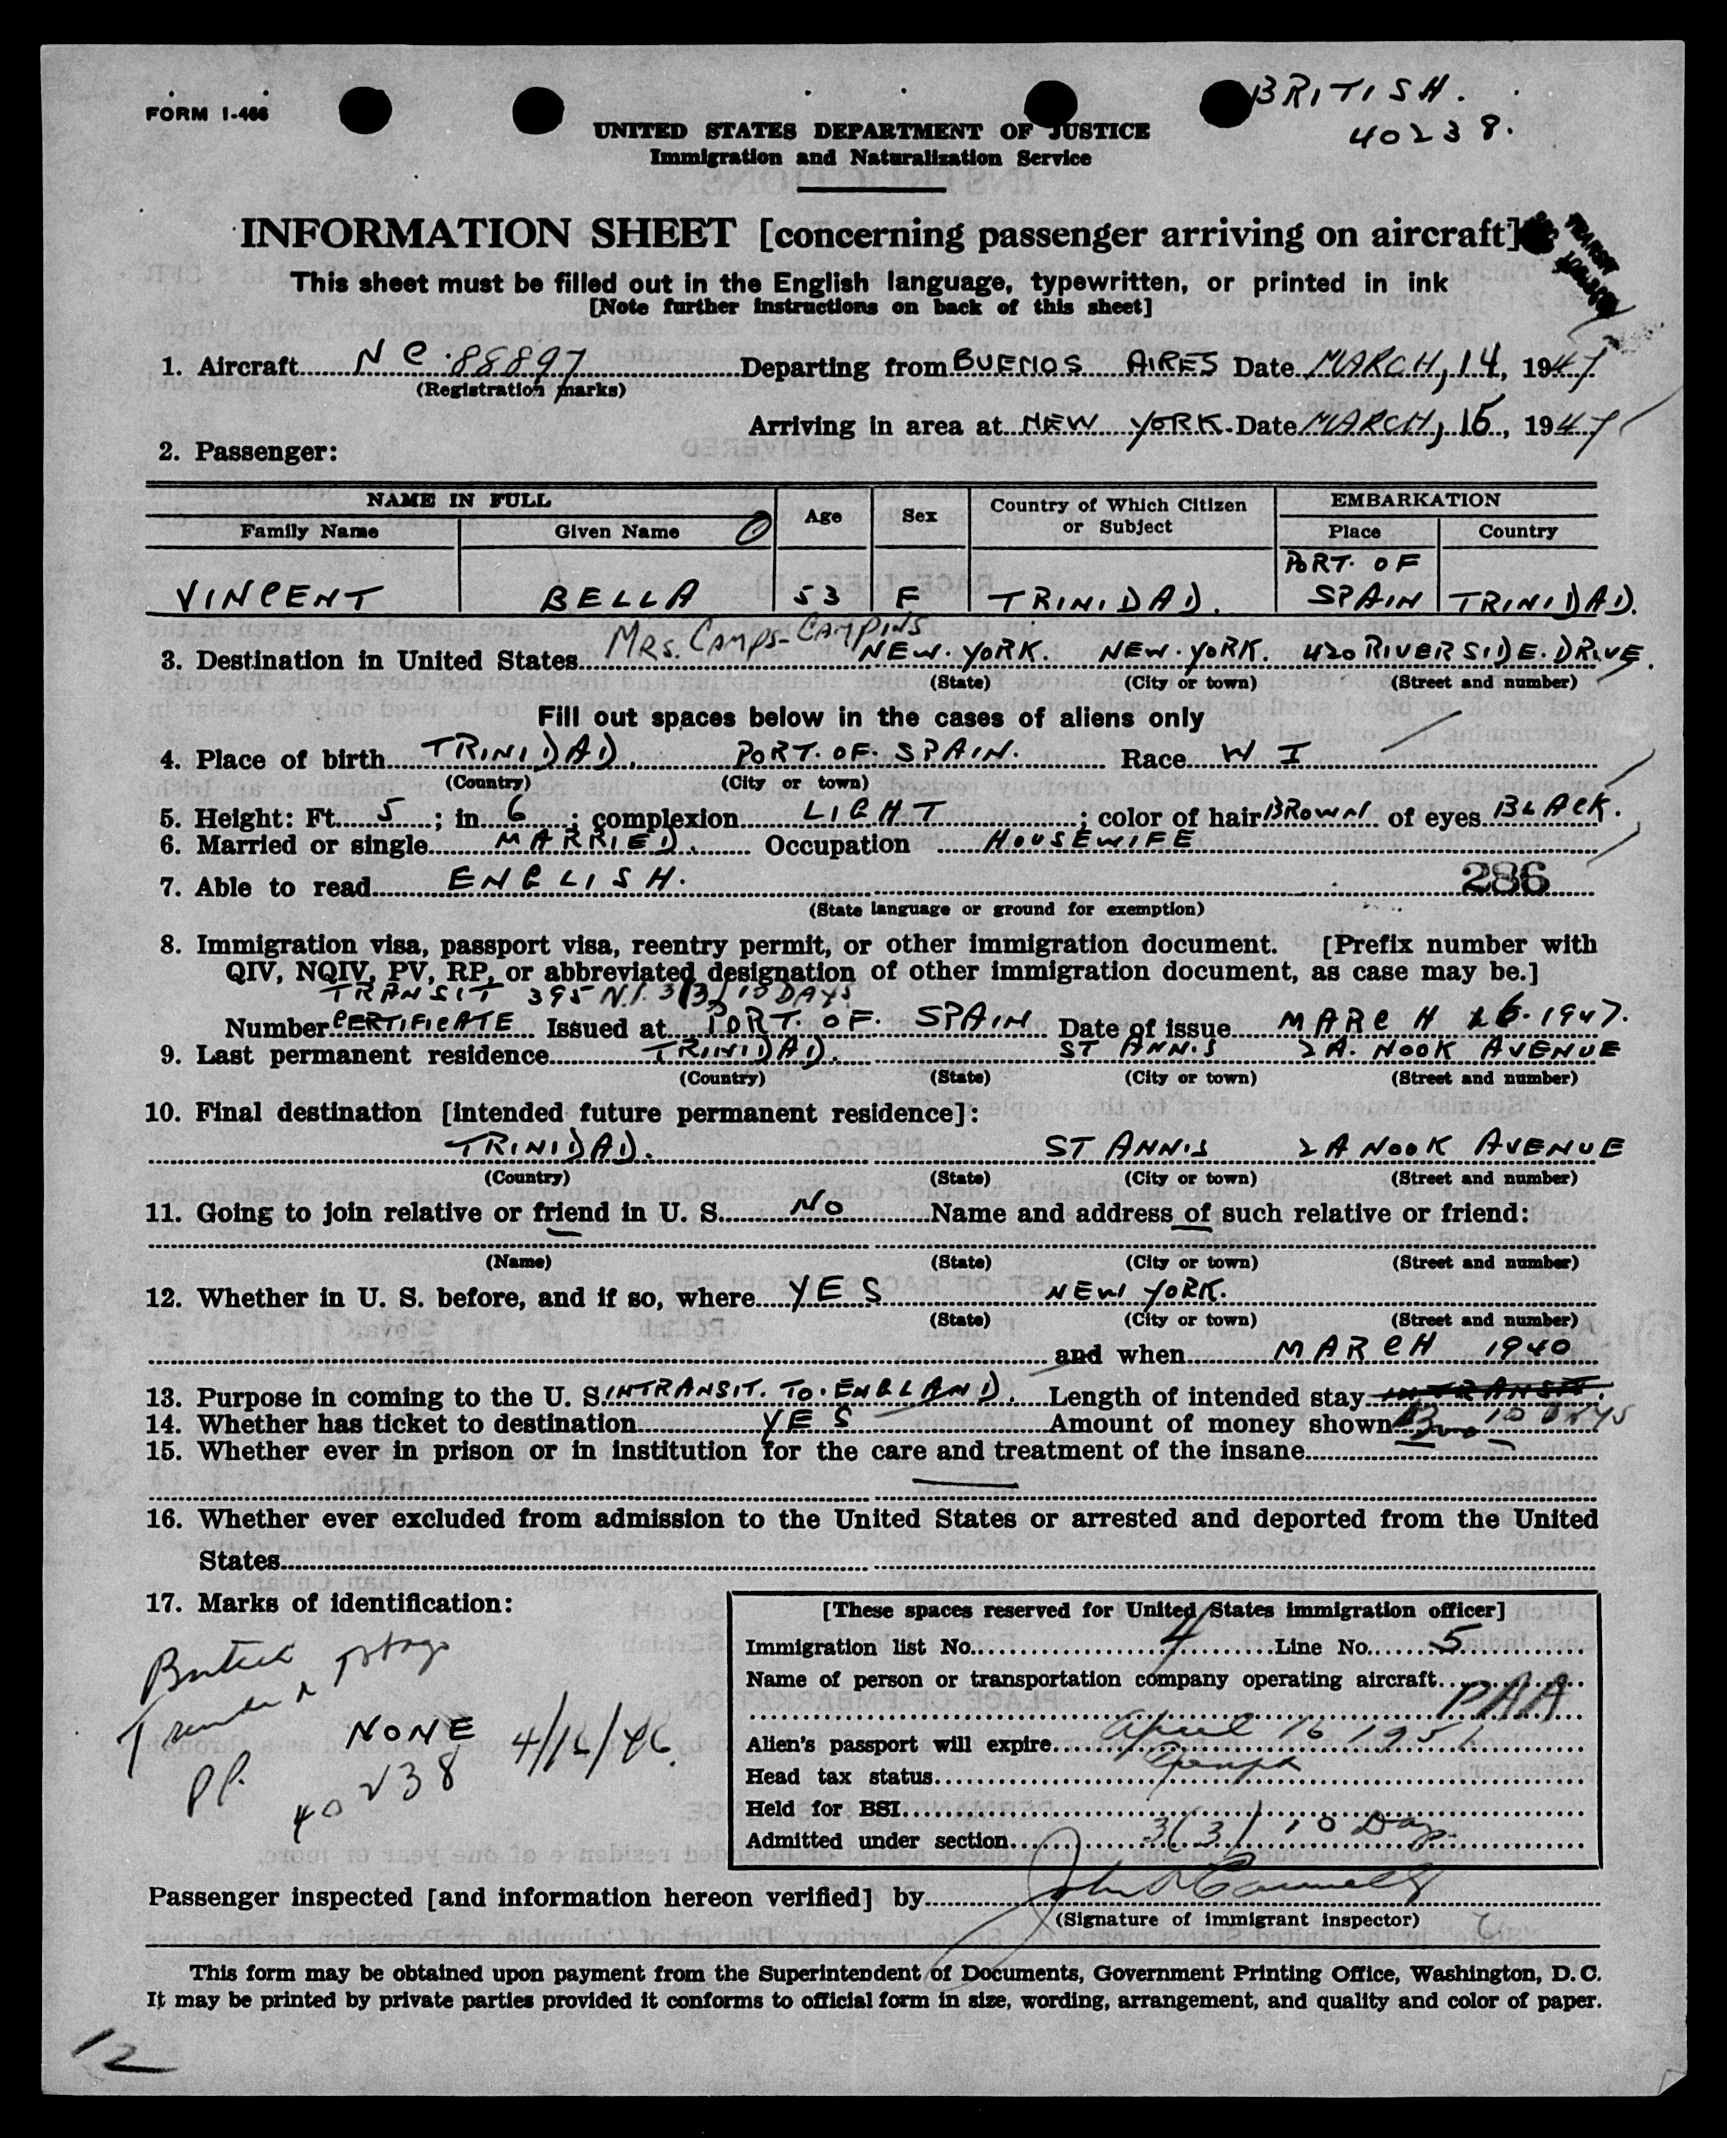 BRITISH.
40238.
FORM I-466
UNITED STATES DEPARTMENT OF JUSTICE
Immigration and Naturalization Service
INFORMATION SHEET [concerning passenger arriving on aircraft]
This sheet must be filled out in the English language, typewritten, or printed in ink
[Note further instructions on back of this sheet]
1. Aircraft NC.88897 Departing from BUENOS AIRES Date MARCH, 14, 1947
(Registration marks)
Arriving in area at NEW YORK. Date MARCH, 15, 1947
2. Passenger:
NAME IN FULL Age Sex Country of Which Citizen or Subject EMBARKATION
Family Name Given Name Place Country
PORT. OF
VINCENT BELLA 53 F TRINIDAD. SPAIN TRINIDAD.
MRS. CAMPS-CAMPINS
3. Destination in United States NEW. YORK. NEW. YORK. 420 RIVERSIDE. DRIVE.
(State) (City or town) (Street and number)
Fill out spaces below in the cases of aliens only
4. Place of birth TRINIDAD. PORT. OF. SPAIN. Race W I
(Country) (City or town)
5. Height: Ft. 5; in. 6; complexion LIGHT; color of hair BROWN of eyes BLACK.
6. Married or single MARRIED. Occupation HOUSEWIFE
7. Able to read ENGLISH. 286
(State language or ground for exemption)
8. Immigration visa, passport visa, reentry permit, or other immigration document. [Prefix number with
QIV, NQIV, PV, RP, or abbreviated designation of other immigration document, as case may be.]
TRANSIT 395 N.I. 3(3) 10 DAYS
Number CERTIFICATE Issued at PORT. OF. SPAIN Date of issue MARCH 6. 1947.
9. Last permanent residence TRINIDAD. ST ANN.S 2A. NOOK AVENUE
(Country) (State) (City or town) (Street and number)
10. Final destination [intended future permanent residence]:
TRINIDAD. ST ANN.S 2A NOOK AVENUE
(Country) (State) (City or town) (Street and number)
11. Going to join relative or friend in U. S. NO Name and address of such relative or friend:
(Name) (State) (City or town) (Street and number)
12. Whether in U. S. before, and if so, where YES NEW YORK.
(State) (City or town) (Street and number)
and when MARCH 1940
13. Purpose in coming to the U. S. INTRANSIT. TO. ENGLAND. Length of intended stay IN TRANSIT.
14. Whether has ticket to destination YES Amount of money shown 10 DAYS
15. Whether ever in prison or in institution for the care and treatment of the insane
16. Whether ever excluded from admission to the United States or arrested and deported from the United
States
17. Marks of identification:
[These spaces reserved for United States immigration officer]
Immigration list No. 4 Line No. 5
Name of person or transportation company operating aircraft
PAA
Alien's passport will expire April 16 1951
Head tax status Exempt
Held for BSI
Admitted under section 3(3) 10 Days
NONE 4/16/46.
PP. 40238
Passenger inspected [and information hereon verified] by
(Signature of immigrant inspector)
This form may be obtained upon payment from the Superintendent of Documents, Government Printing Office, Washington, D. C.
It may be printed by private parties provided it conforms to official form in size, wording, arrangement, and quality and color of paper.
12